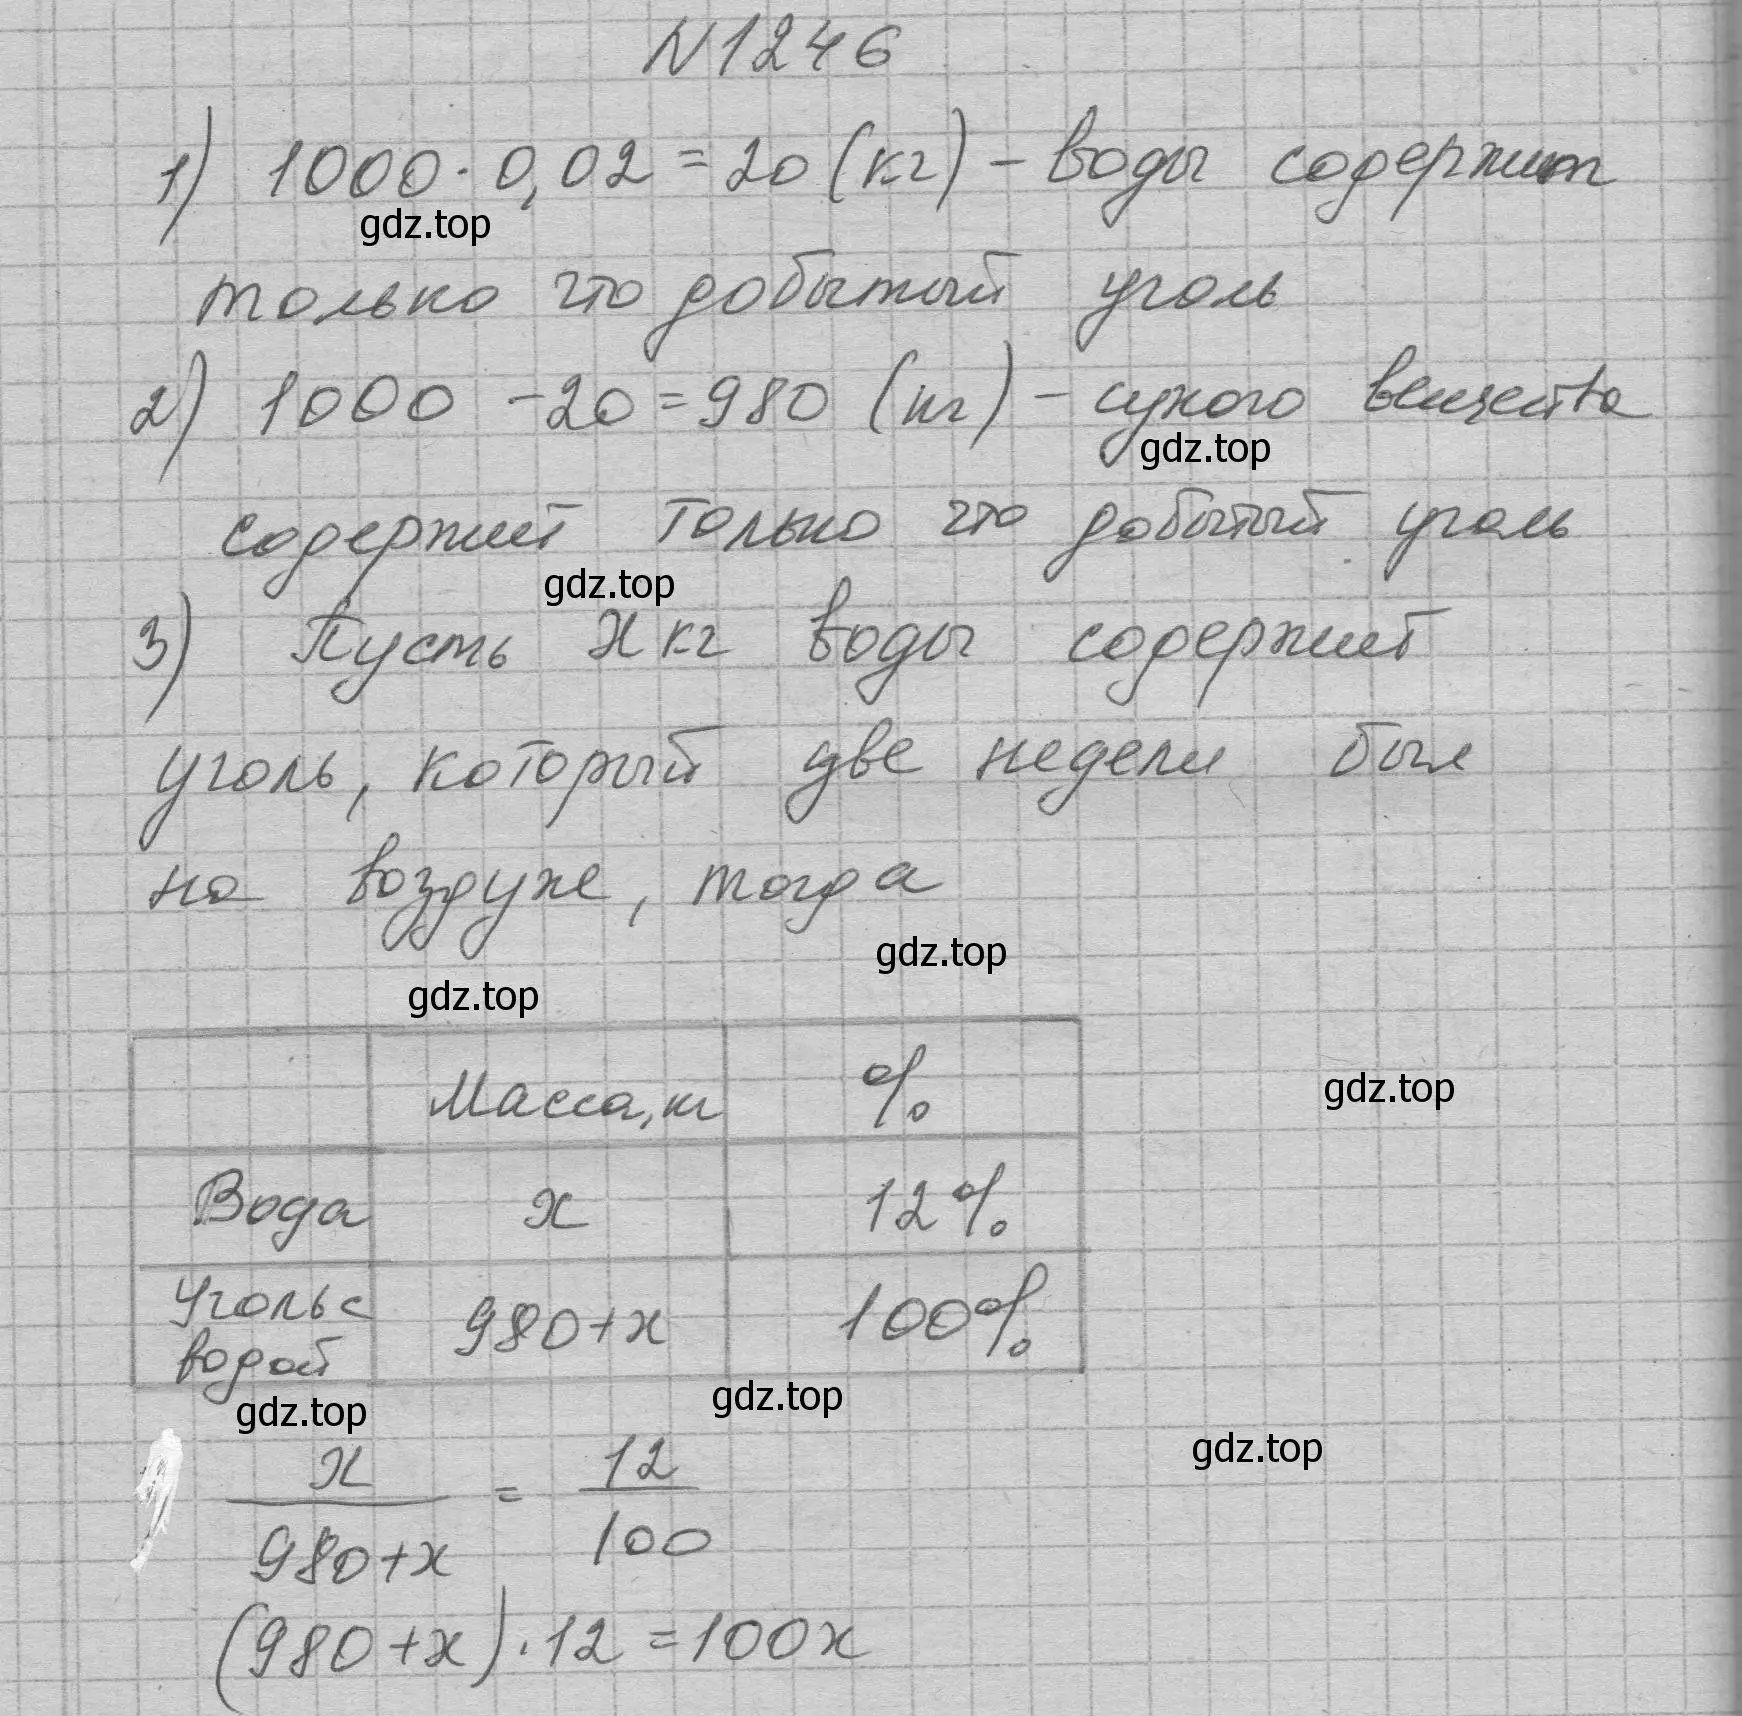 N1246
1) 1000 · 0,02 = 20 (кг) – воды содержит
gdz.top
только что добытый уголь
2) 1000 – 20 = 980 (кг) – сухого вещества
gdz.top
содержит только что добытый уголь
gdz.top
3) Пусть x кг воды содержит
уголь, который две недели был
на воздухе, тогда
gdz.top
gdz.top
Масса, кг %
gdz.top
Вода x 12%
Уголь с водой 980+x 100%
gdz.top
gdz.top
gdz.top
x/(980+x) = 12/100
(980+x)·12=100x